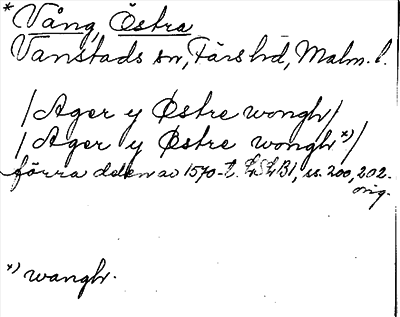 * Vång, Östra
Vanstads sn, Färs hd, Malm. l.
/Ager y Østre wongh/
/Ager y Østre wongh *)/
förra delen av 1570-t. LSLB1, ss. 200, 202.
orig.
*) wangh.